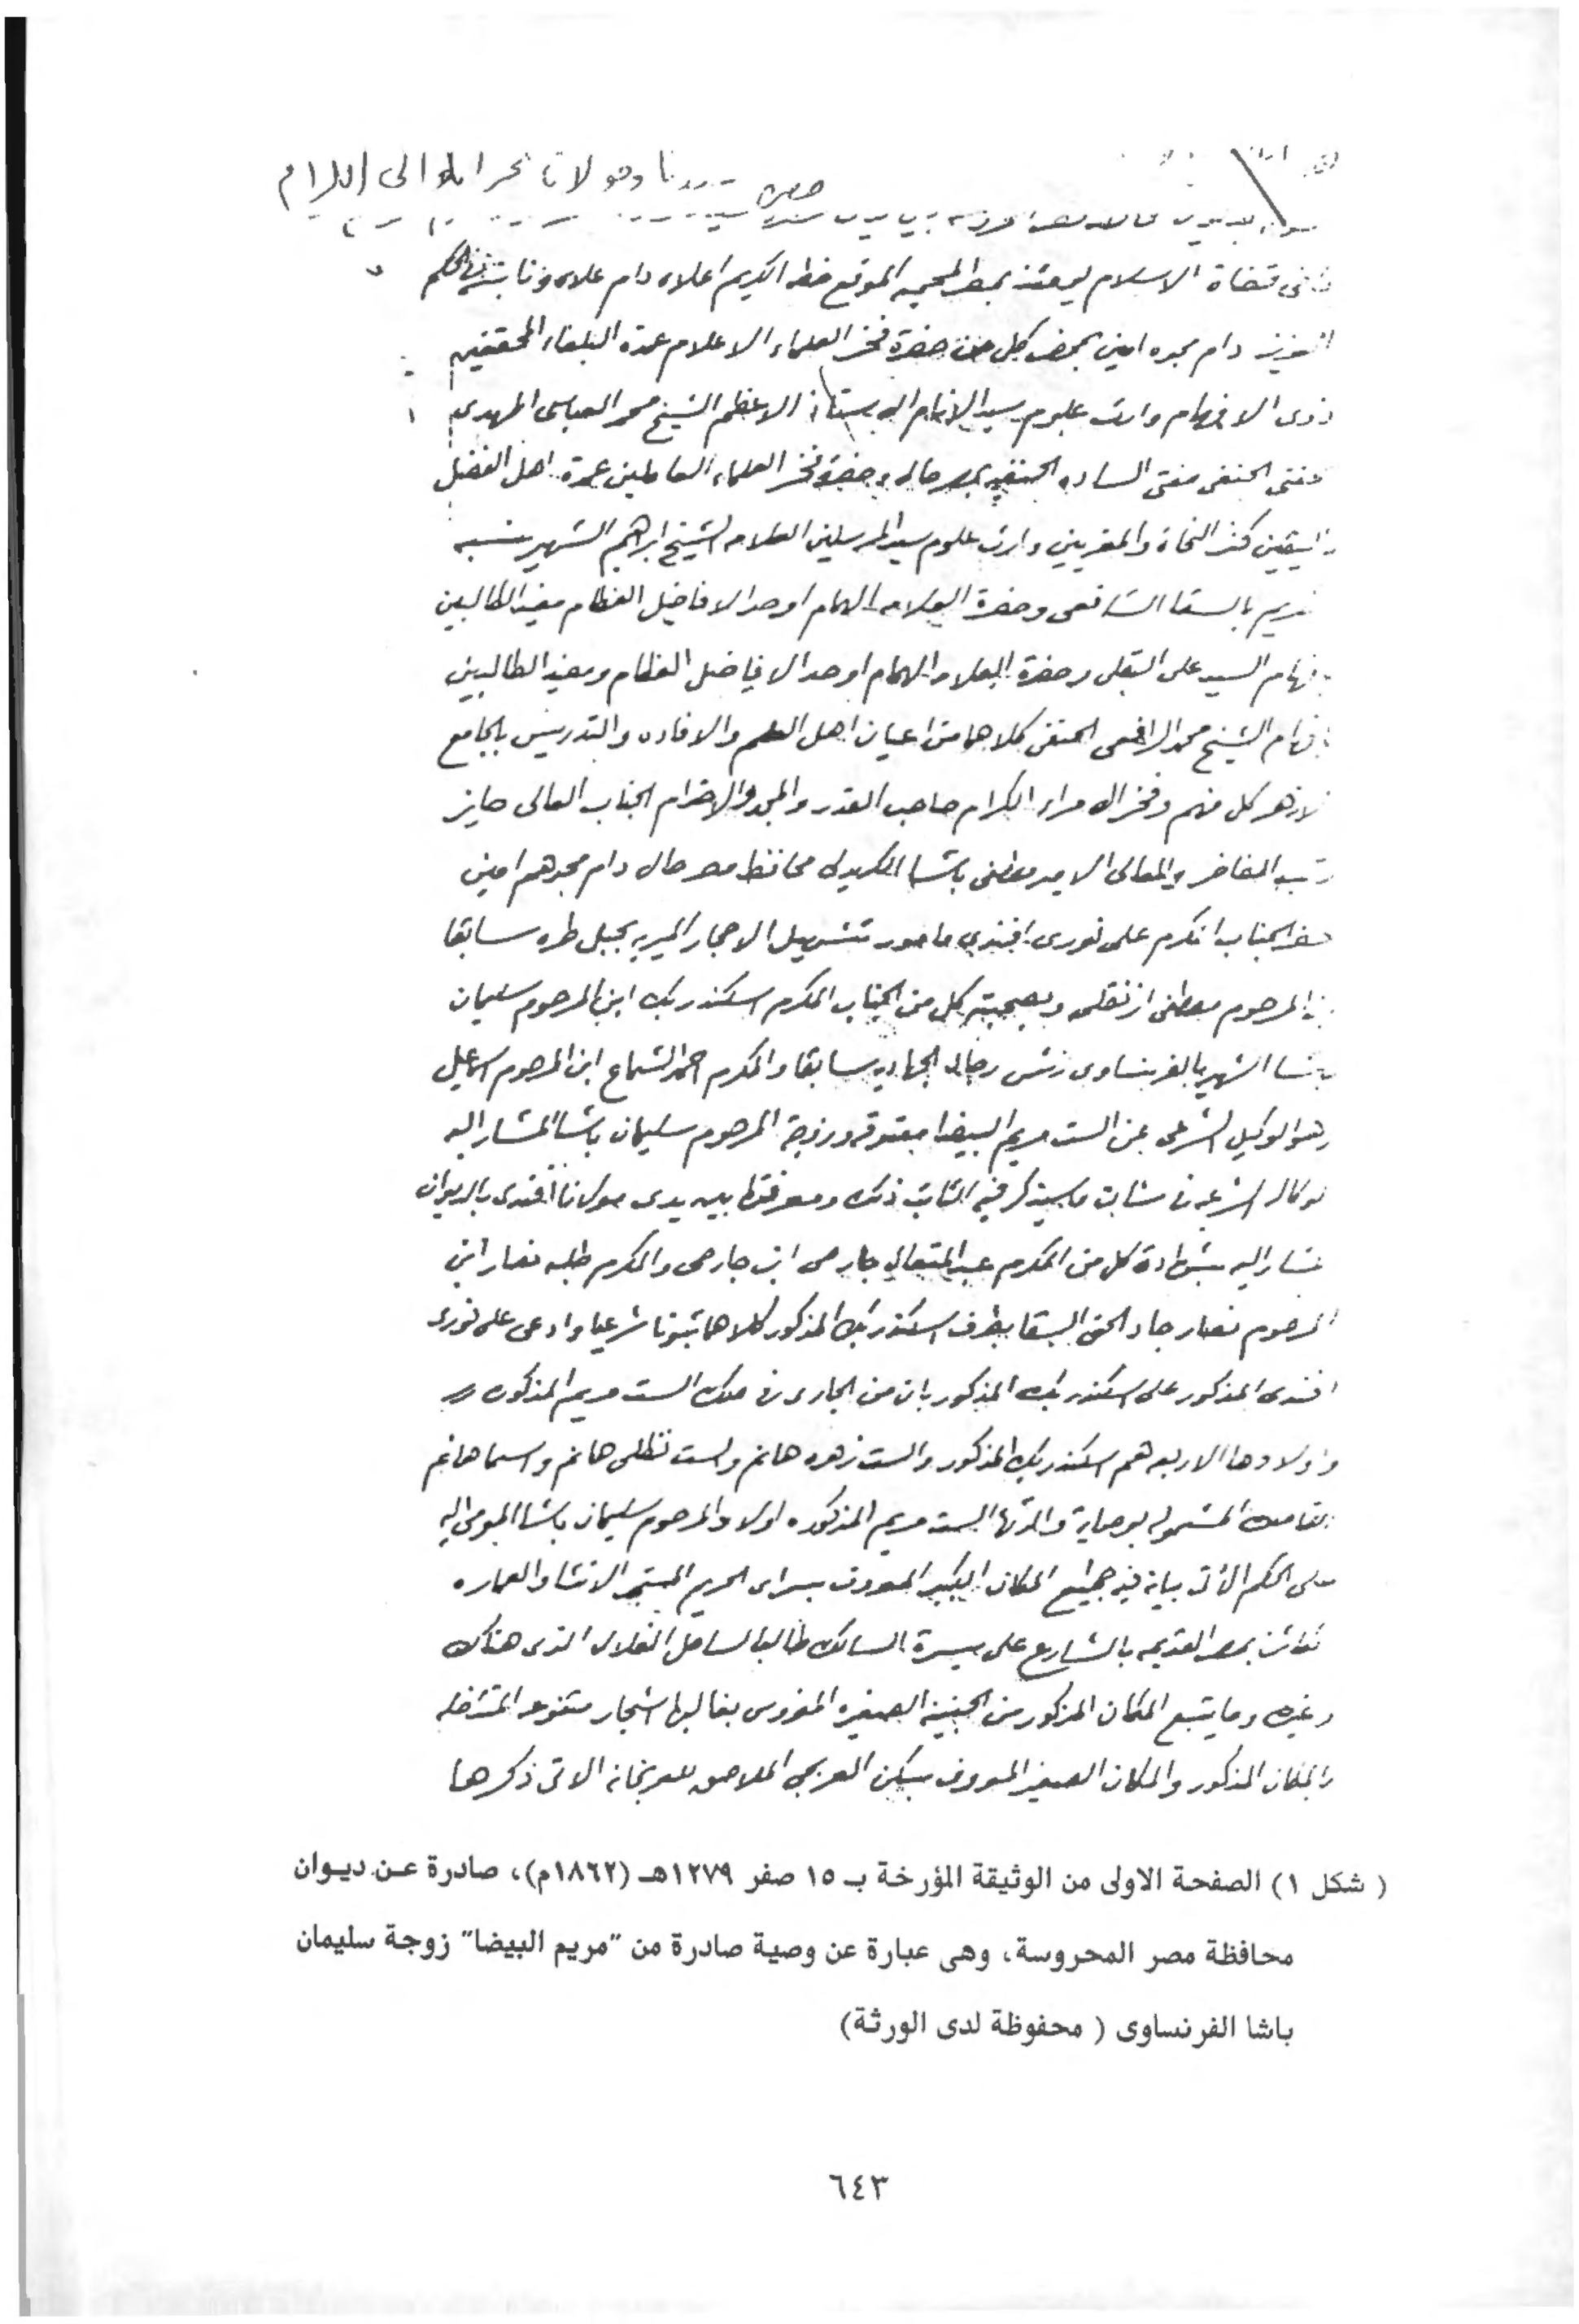 سيدنا ومولانا فخر الموالى الكرام
قضاة الاسلام يومئذ بمصر المحميه الموقع خطه الكريم اعلاه دام علاه
دام مجده امين بمحضر كل من حضرة فخر العلماء الاعلام عمدة البلغاء المحققين
ذوى الافهام وارث علوم سيد الانام الاستاذ الاعظم الشيخ محمد العباسى المهدى
الحنفى مفتى الساده الحنفيه بمصر حالا وحضرة فخر العلماء العاملين عمدة اهل الفضل
واليقين كنز النحاة والمعربين وارث علوم سيد المرسلين العلامه الشيخ ابراهيم الشهير نسبه
بالسقا الشافعى وحضرة العلامه الهمام اوحد الافاضل العظام مفيد الطالبين
السيد على البقلى وحضرة العلامه الهمام اوحد الافاضل العظام ومفيد الطالبين
الشيخ محمد الرافعى الحنفى كلاهما من اعيان اهل العلم والافاده والتدريس بالجامع
الازهر كل منهم وفخر الامراء الكرام صاحب القدر والمجد والاحترام الجناب العالى حايز
رتب المفاخر والمعالى الامير مصطفى باشا الكريدلى محافظ مصر حالا دام مجدهم امين
حضر الجناب المكرم على نورى افندى مامور تشهيل الاحجار الميريه بجبل طره سابقا
ابن المرحوم مصطفى ازنقلى وبصحبته كل من الجناب المكرم اسكندر بك ابن المرحوم سليمان
باشا الشهير بالفرنساوى رئس رجال الجهاديه سابقا والمكرم احمد الشماع ابن المرحوم اسماعيل
وهو الوكيل الشرعى عن الست مريم البيضا معتوقه وزوجة المرحوم سليمان باشا المشار اليه
الوكاله الشرعيه فى شان ما سيذكر فيه الثابت ذلك ومعرفتها بين يدى مولانا افندى بالديوان
المشار اليه بشهادة كل من المكرم عبد المتعالى جارحى ابن جارحى والمكرم طلبه نصار ابن
المرحوم نصار جاد الحق السقا بطرف اسكندر بك المذكور كلاهما ثبوتا شرعيا وادعى على نورى
افندى المذكور على اسكندر بك المذكور بان من الجارى فى ملك الست مريم المذكوره
واولادها الاربعه هم اسكندر بك المذكور والست زهره هانم والست نظلى هانم واسما هانم
القاصره المشموله بوصاية والدتها الست مريم المذكوره اولاد المرحوم سليمان باشا المومى اليه
على الحكم الاتى بيانه فيه جميع المكان الكبير المعروف بسراى الحريم المستجد الانشا والعماره
الكائن بمصر القديمه بالشارع على يسرة السالك طالبا لساحل الغلال الذى هناك
وغيره وما يتبع المكان المذكور من الجنينه الصغيره المغروس بغالبها اشجار متنوعه
بالمكان المذكور والمكان الصغير المعروف بسكن العربجى الملاصق للعربخانه الاتى ذكرها
( شكل ١) الصفحة الاولى من الوثيقة المؤرخة بـ ١٥ صفر ١٢٧٩هـ (١٨٦٢م)، صادرة عن ديوان
محافظة مصر المحروسة، وهى عبارة عن وصية صادرة من "مريم البيضا" زوجة سليمان
باشا الفرنساوى ( محفوظة لدى الورثة)
٦٤٣